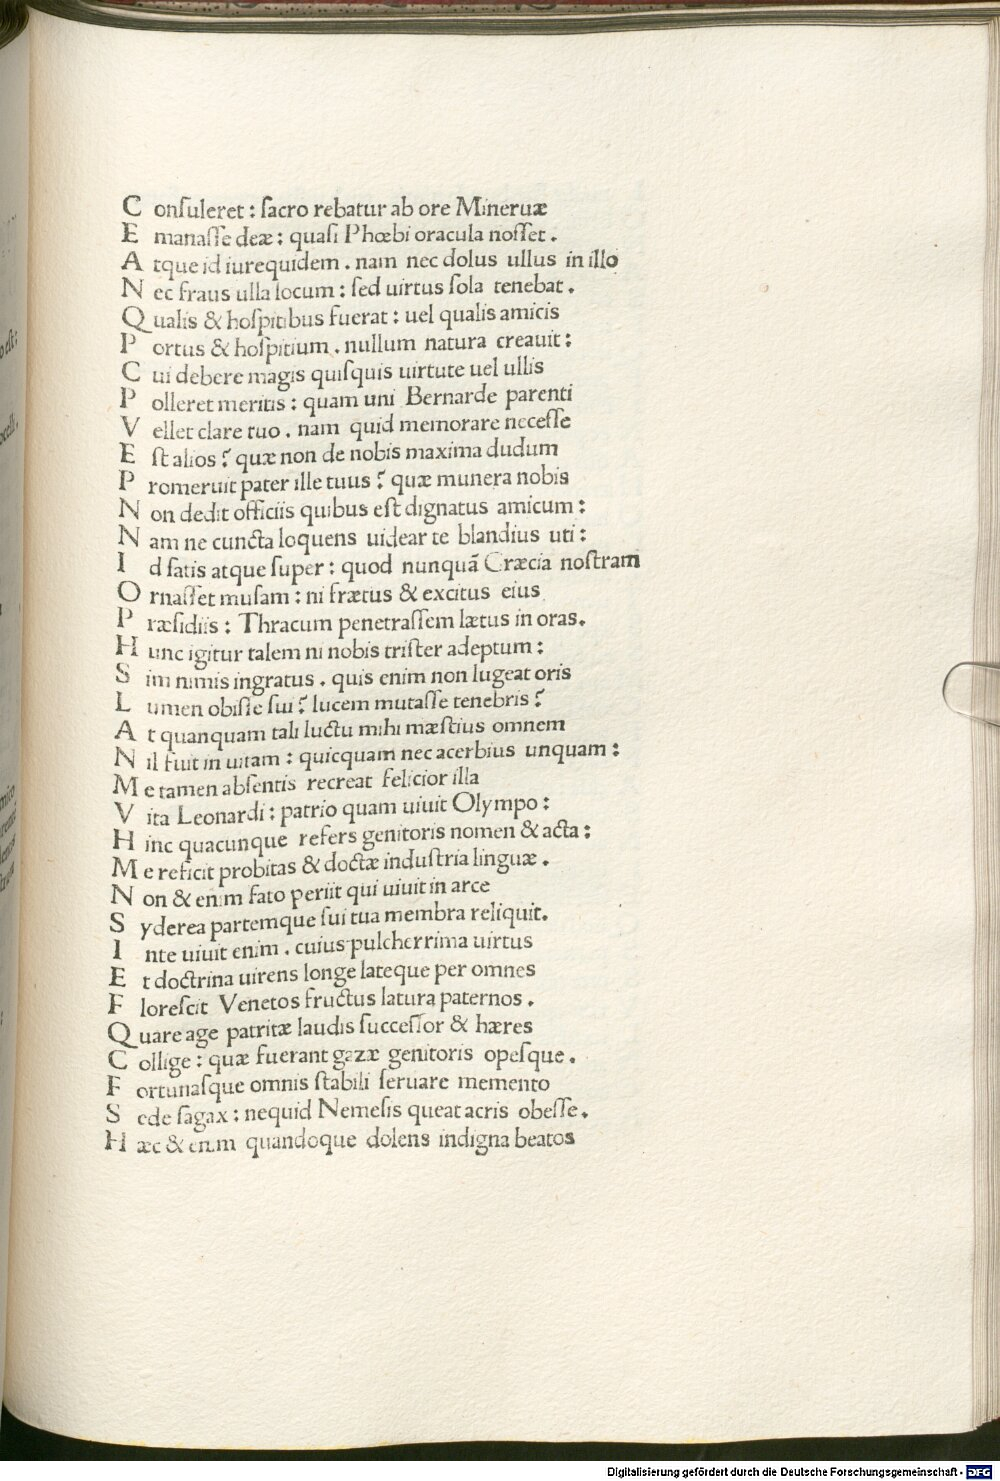 C onſuleret : ſacro rebatur ab ore Mineruæ
E manaſſe deæ : quaſi Phœbi oracula noſſet .
A tque id iurequidem . nam nec dolus ullus in illo
N ec fraus ulla locum : ſed uirtus ſola tenebat .
Q ualis & hoſpitibus fuerat : uel qualis amicis
P ortus & hoſpitium . nullum natura creauit :
C ui debere magis quiſquis uirtute uel ullis
P olleret meritis : quam uni Bernarde parenti
V ellet clare tuo . nam quid memorare neceſſe
E ſt alios ? quæ non de nobis maxima dudum
P romeruit pater ille tuus ? quæ munera nobis
N on dedit officiis quibus eſt dignatus amicum :
N am ne cuncta loquens uidear te blandius uti :
I d ſatis atque ſuper : quod nunquã Græcia noſtram
O rnaſſet muſam : ni frætus & excitus eius
P ræſidiis : Thracum penetraſſem lætus in oras.
H unc igitur talem ni nobis triſter adeptum :
S im nimis ingratus . quis enim non lugeat oris
L umen obiſſe ſui ? lucem mutaſſe tenebris ?
A t quanquam tali luctu mihi mæſtius omnem
N il fuit in uitam : quicquam nec acerbius unquam :
M e tamen abſentis recreat felicior illa
V ita Leonardi : patrio quam uiuit Olympo :
H inc quacunque refers genitoris nomen & acta :
M e reficit probitas & doctæ induſtria linguæ .
N on & enim fato periit qui uiuit in arce
S yderea partemque ſui tua membra reliquit.
I nte uiuit enim . cuius pulcherrima uirtus
E t doctrina uirens longe lateque per omnes
F loreſcit Venetos fructus latura paternos .
Q uare age patritæ laudis ſucceſſor & hæres
C ollige : quæ fuerant gazæ genitoris opeſque .
F ortunaſque omnis ſtabili ſeruare memento
S ede ſagax : nequid Nemeſis queat acris obeſſe .
H æc & enim quandoque dolens indigna beatos
Digitalisierung gefördert durch die Deutsche Forschungsgemeinschaft - DFG